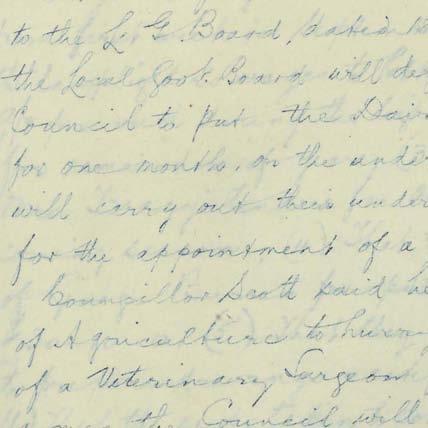 to the L. G. Board, dated 1
the Local Govt. Board will de
Council to put the Dair
for one month, on the under
will carry out their under
for the appointment of a
Councillor Scott said he
of Agriculture to hurry
of a Veterinary Surgeon
the Council will